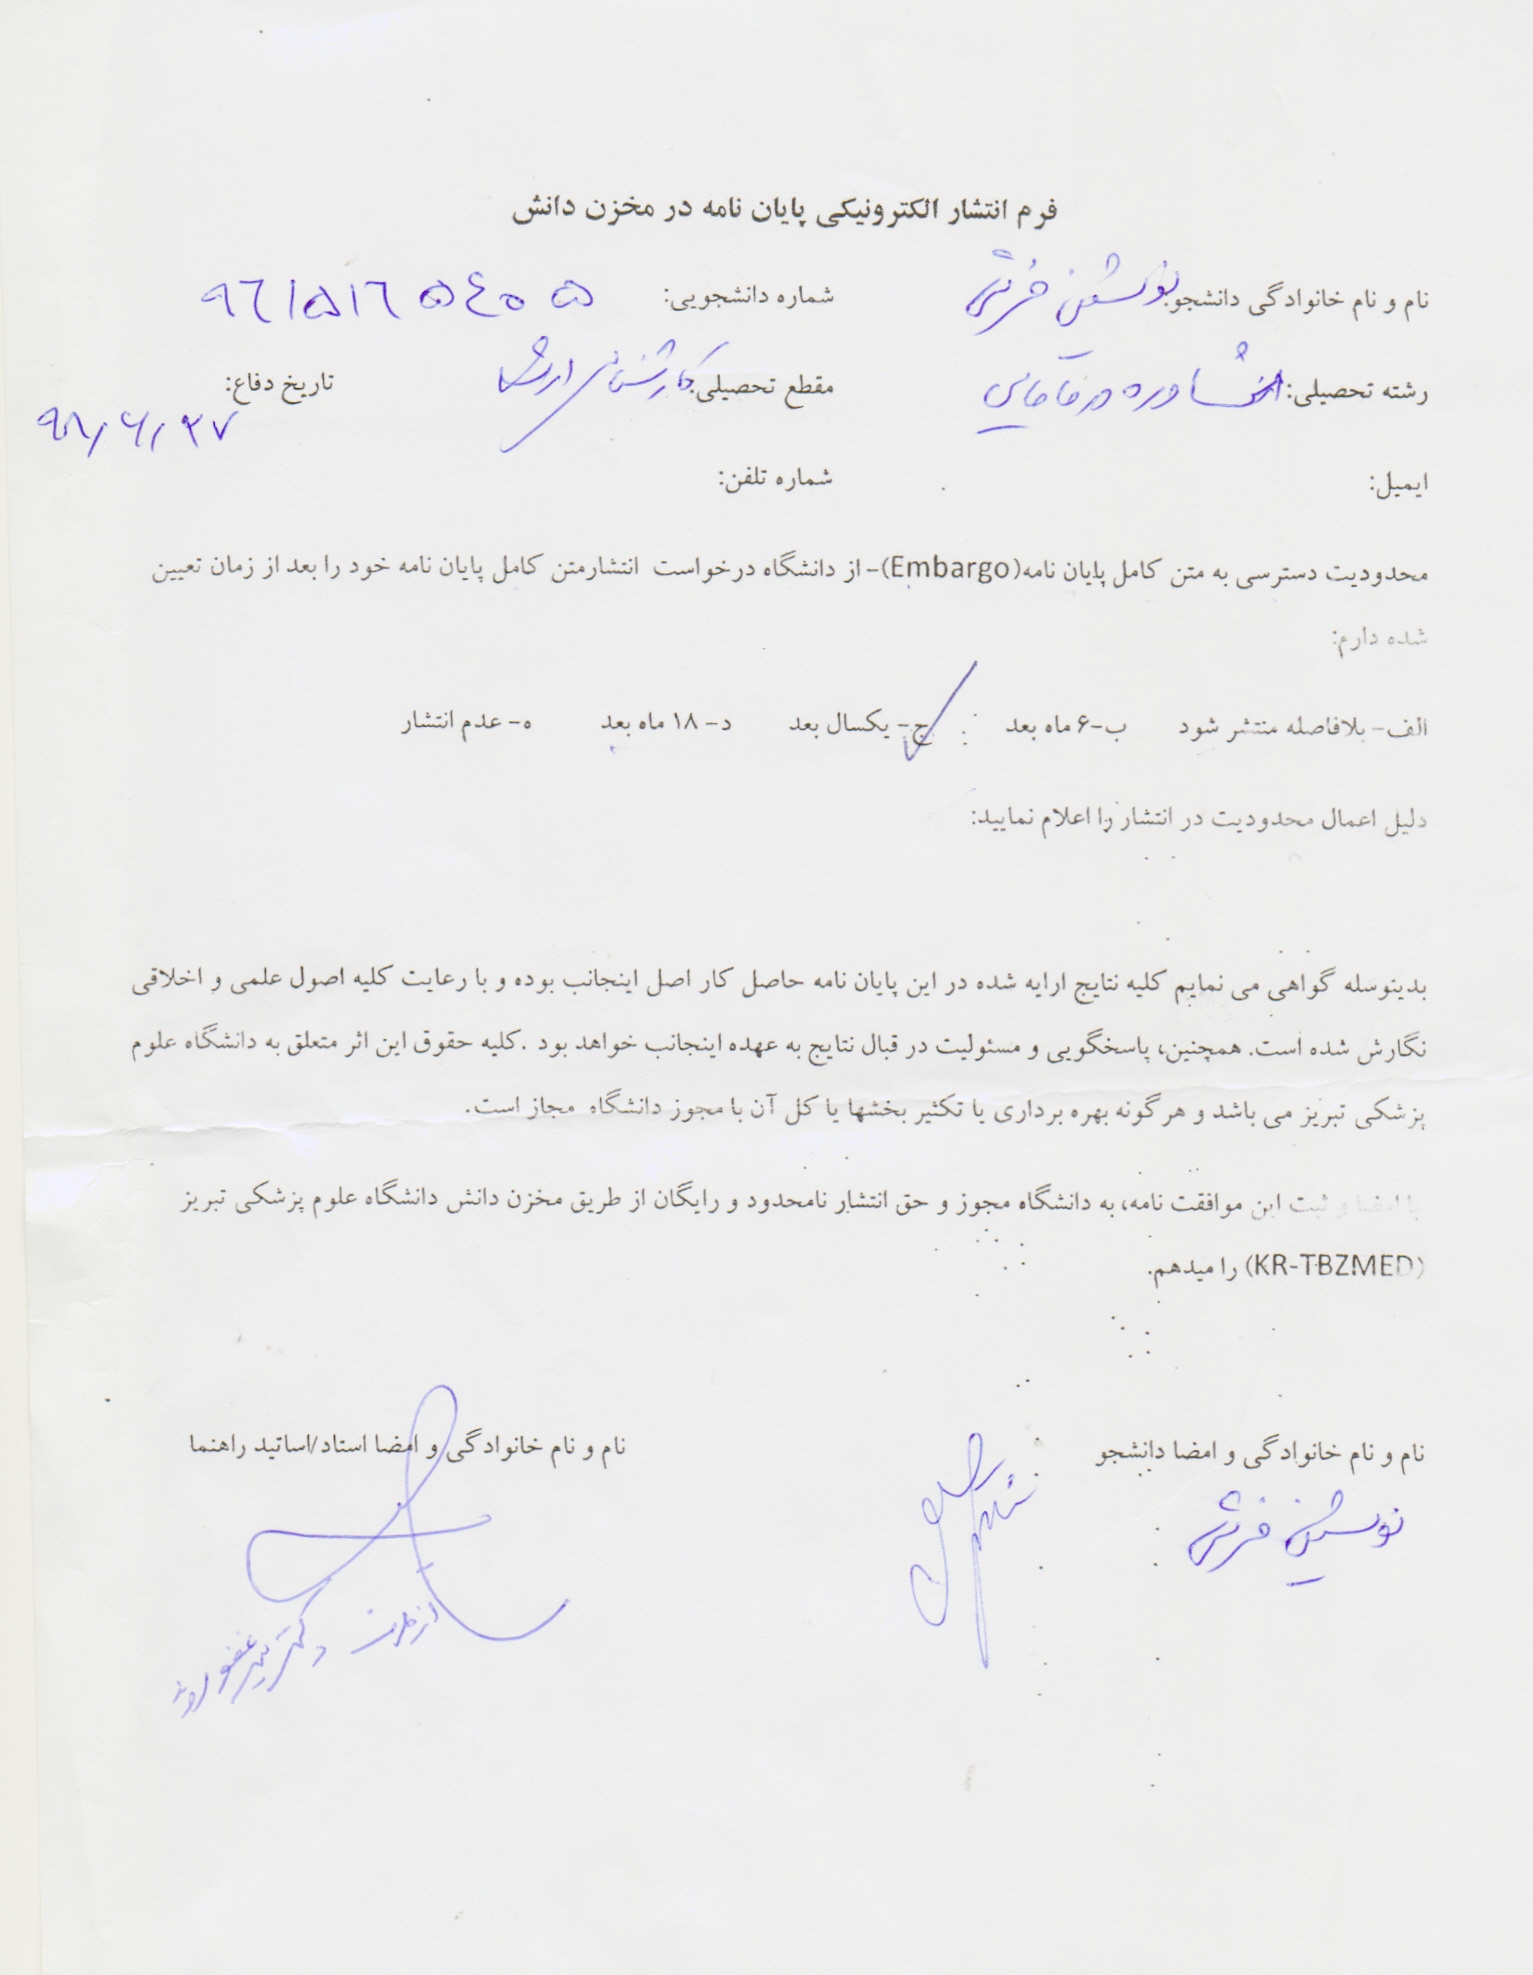 فرم انتشار الکترونیکی پایان نامه در مخزن دانش
نام و نام خانوادگی دانشجو: نوشین قرشی شماره دانشجویی: ۹۶۱۵۱۶۵۴۰۵
رشته تحصیلی: مشاوره در مامایی مقطع تحصیلی: کارشناسی ارشد تاریخ دفاع:
۹۸/۶/۲۷
ایمیل: شماره تلفن:
محدودیت دسترسی به متن کامل پایان نامه(Embargo)- از دانشگاه درخواست انتشارمتن کامل پایان نامه خود را بعد از زمان تعیین
شده دارم:
الف- بلافاصله منتشر شود ب-۶ ماه بعد ج- یکسال بعد د- ۱۸ ماه بعد ه- عدم انتشار
دلیل اعمال محدودیت در انتشار را اعلام نمایید:
بدینوسله گواهی می نمایم کلیه نتایج ارایه شده در این پایان نامه حاصل کار اصل اینجانب بوده و با رعایت کلیه اصول علمی و اخلاقی
نگارش شده است. همچنین، پاسخگویی و مسئولیت در قبال نتایج به عهده اینجانب خواهد بود .کلیه حقوق این اثر متعلق به دانشگاه علوم
پزشکی تبریز می باشد و هرگونه بهره برداری یا تکثیر بخشها یا کل آن با مجوز دانشگاه مجاز است.
با امضا و ثبت این موافقت نامه، به دانشگاه مجوز و حق انتشار نامحدود و رایگان از طریق مخزن دانش دانشگاه علوم پزشکی تبریز
(KR-TBZMED) را میدهم.
نام و نام خانوادگی و امضا دانشجو نام و نام خانوادگی و امضا استاد/اساتید راهنما
نوشین قرشی
از طرف دکتر